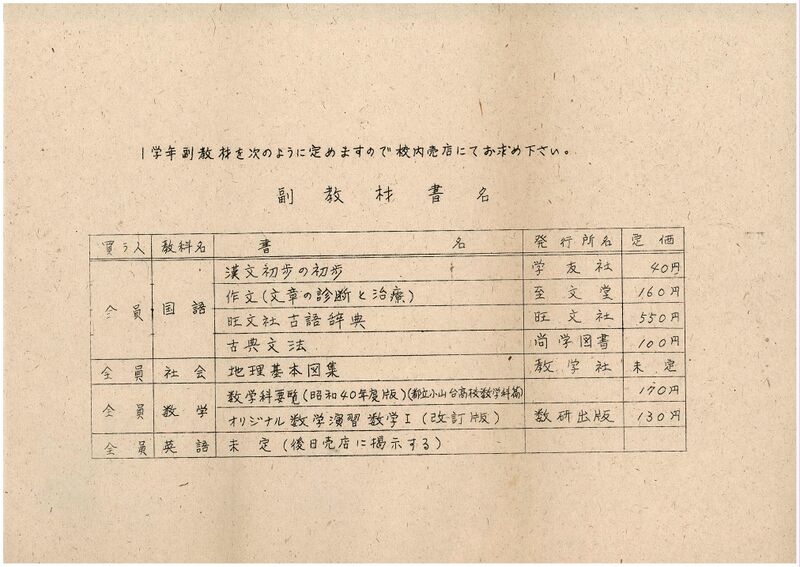 1学年副教材を次のように定めますので校内売店にてお求め下さい。
副教材書名
買う人 教科名 書名 発行所名 定価
全員 国語 漢文初歩の初歩 学友社 40円
作文(文章の診断と治療) 至文堂 160円
旺文社古語辞典 旺文社 550円
古典文法 尚学図書 100円
全員 社会 地理基本図集 教学社 未定
全員 数学 数学科要覧(昭和40年度版)(都立小山台高校数学科篇) 170円
オリジナル数学演習数学I(改訂版) 数研出版 130円
全員 英語 未定(後日売店に掲示する)